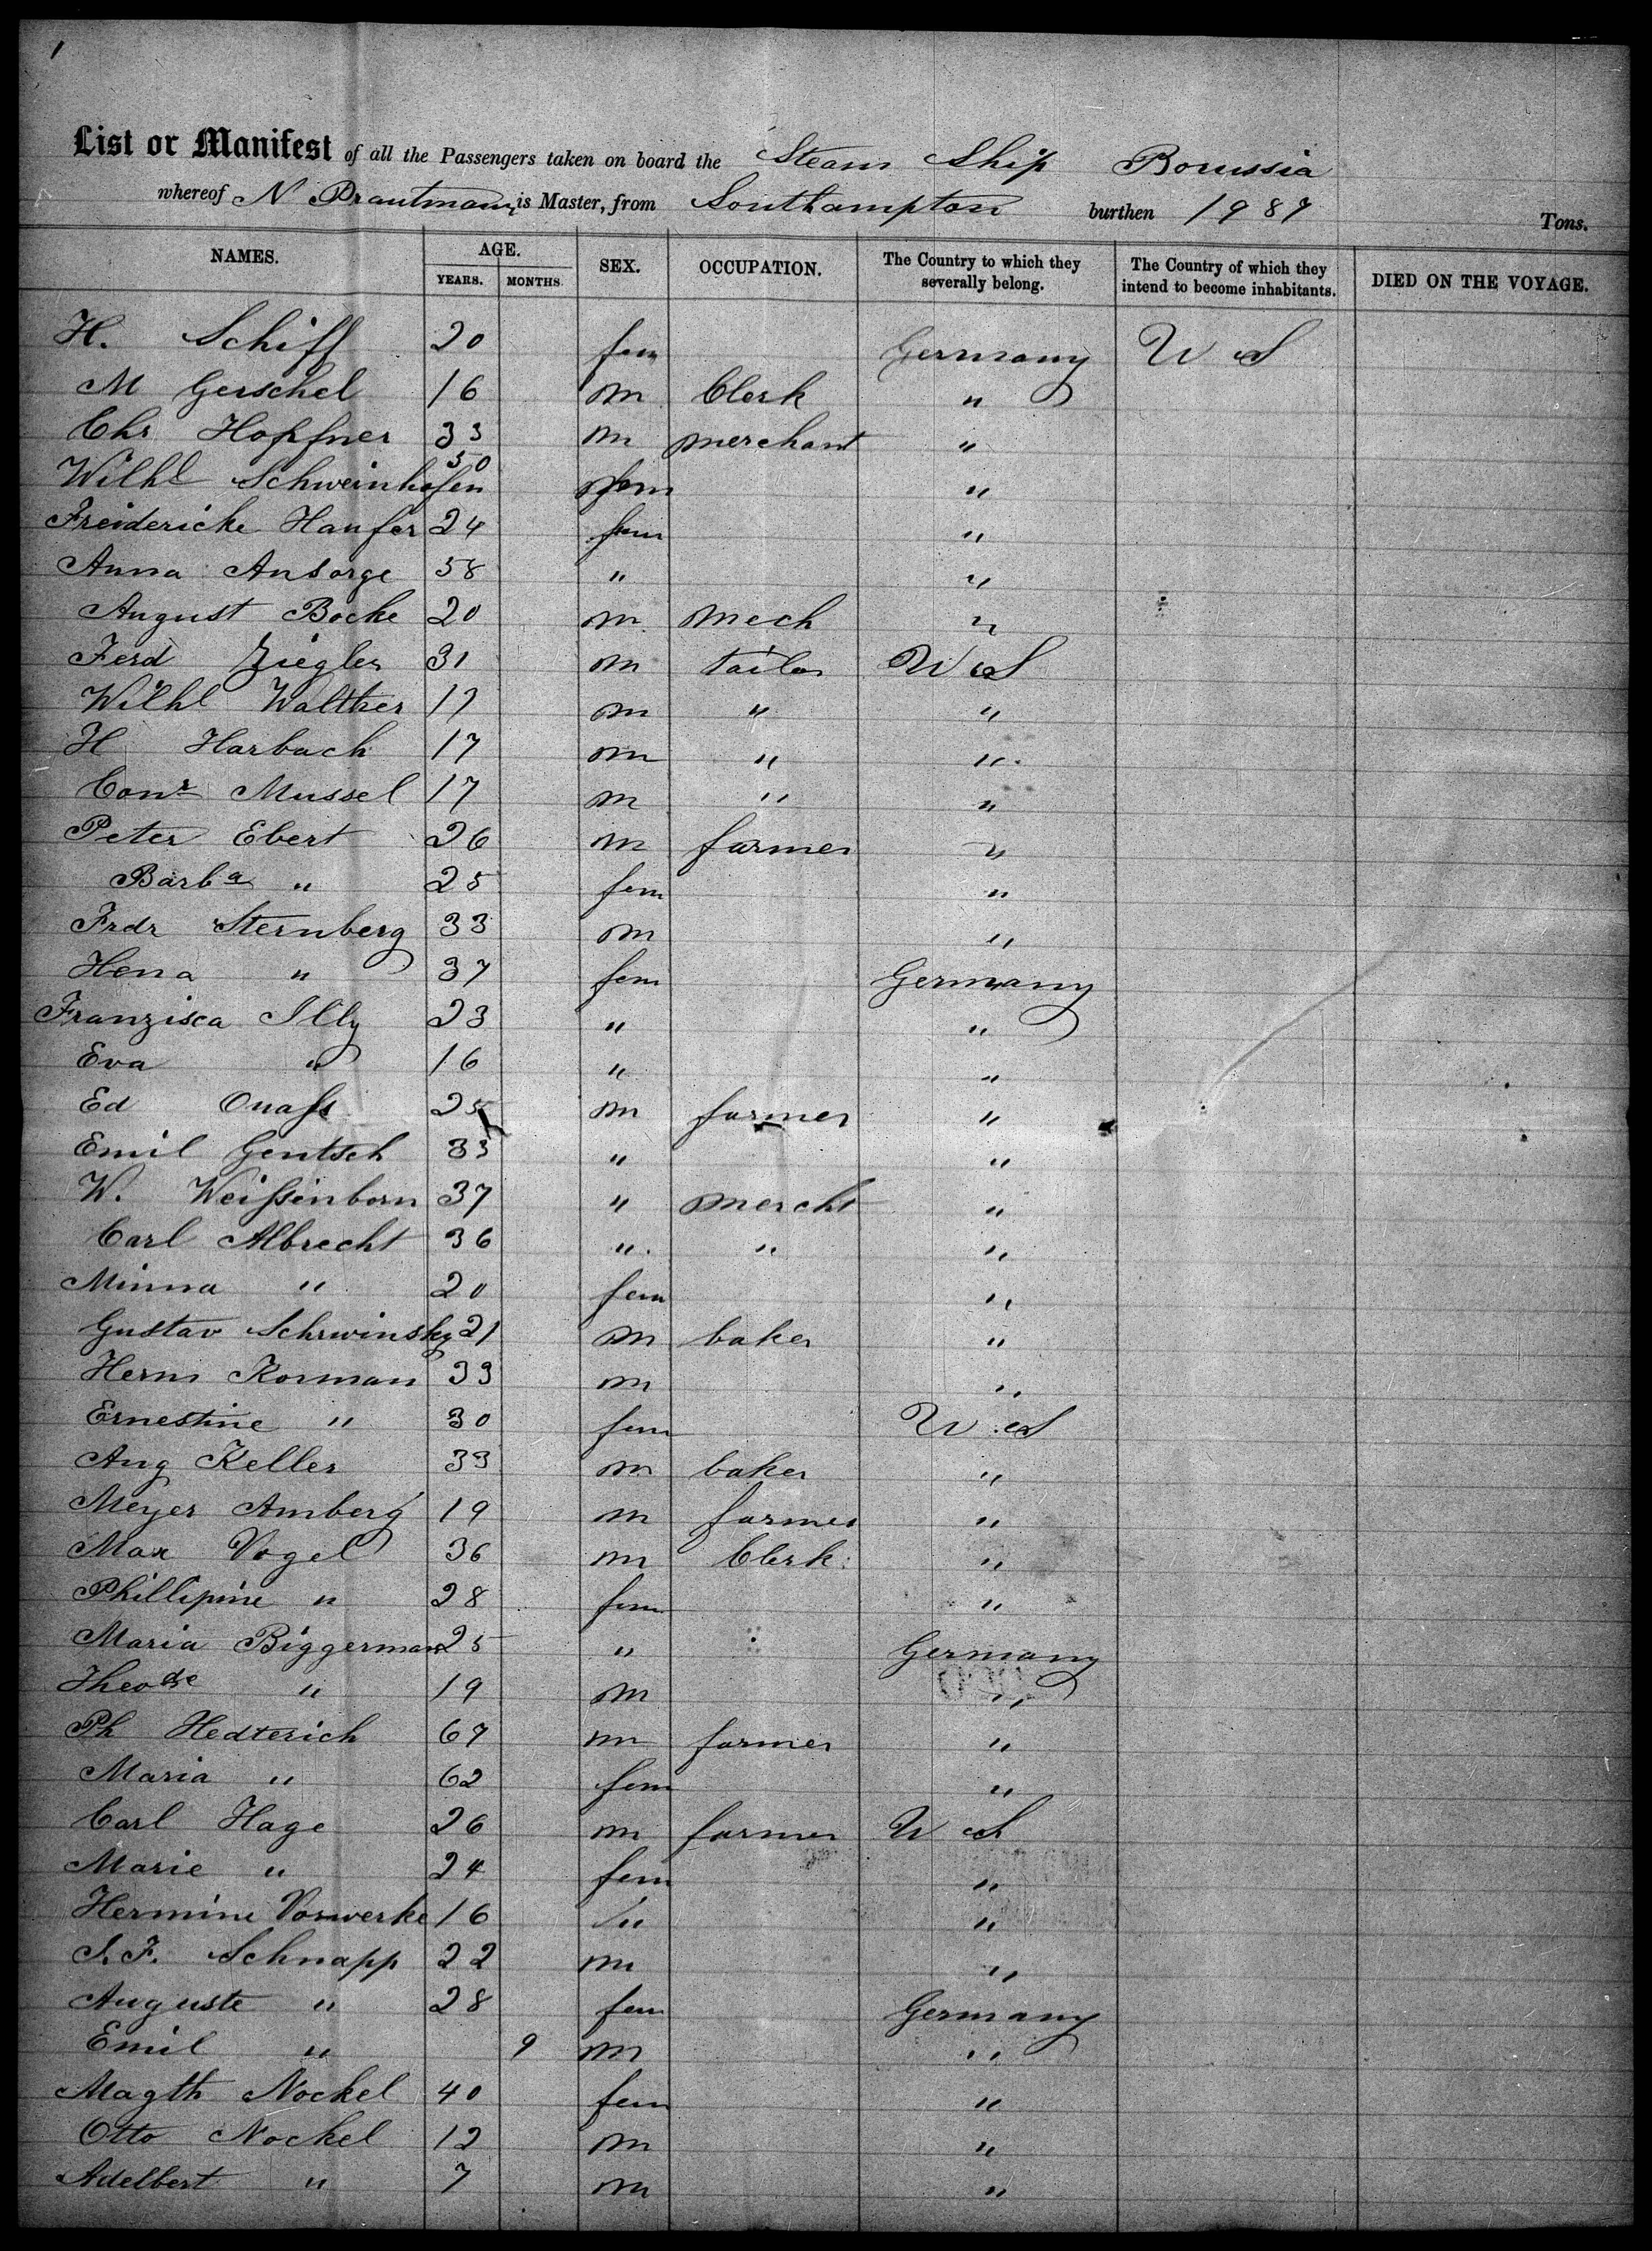 1
List or Manifest of all the Passengers taken on board the Steam Ship Borussia
whereof N Prautmann is Master, from Southampton burthen 1987 Tons.
NAMES. AGE. YEARS. MONTHS. SEX. OCCUPATION. The Country to which they severally belong. The Country of which they intend to become inhabitants. DIED ON THE VOYAGE.
H. Schiff 20 fem Germany U S
M Gerschel 16 m Clerk "
Chr Hopfner 33 m merchant "
Wilhl Schweinhofen 50 fem "
Freidericke Haufer 24 fem "
Anna Ansorge 58 " "
August Bocke 20 m mech "
Ferd Ziegler 31 m tailor U S
Wilhl Walther 17 m " "
H Harbach 17 m " "
Conr Mussel 17 m " "
Peter Ebert 26 m farmer "
Barba " 25 fem "
Frdr Sternberg 33 m "
Hena " 37 fem Germany
Franzisca Illy 23 " "
Eva " 16 " "
Ed 25 m farmer "
Emil Gentsch 33 " "
W. Weissinborn 37 " mercht "
Carl Albrecht 36 " " "
Minna " 20 fem "
Gustav Schrwinsky 21 m baker "
Herm Korman 33 m "
Ernestine " 30 fem U S
Aug Keller 33 m baker "
Meyer Amberg 19 m farmer "
Max Vogel 36 m Clerk "
Phillipine " 28 fem "
Maria Biggerman 25 " Germany
Theodre " 19 m "
Ph Hedterich 67 m farmer "
Maria " 62 fem "
Carl Hage 26 m farmer U S
Marie " 24 fem "
Hermine Vorwerke 16 " "
J. F. Schnapp 22 m "
Auguste " 28 fem Germany
Emil " 9 m "
Magth Nockel 40 fem "
Otto Nockel 12 m "
Adelbert " 7 m "